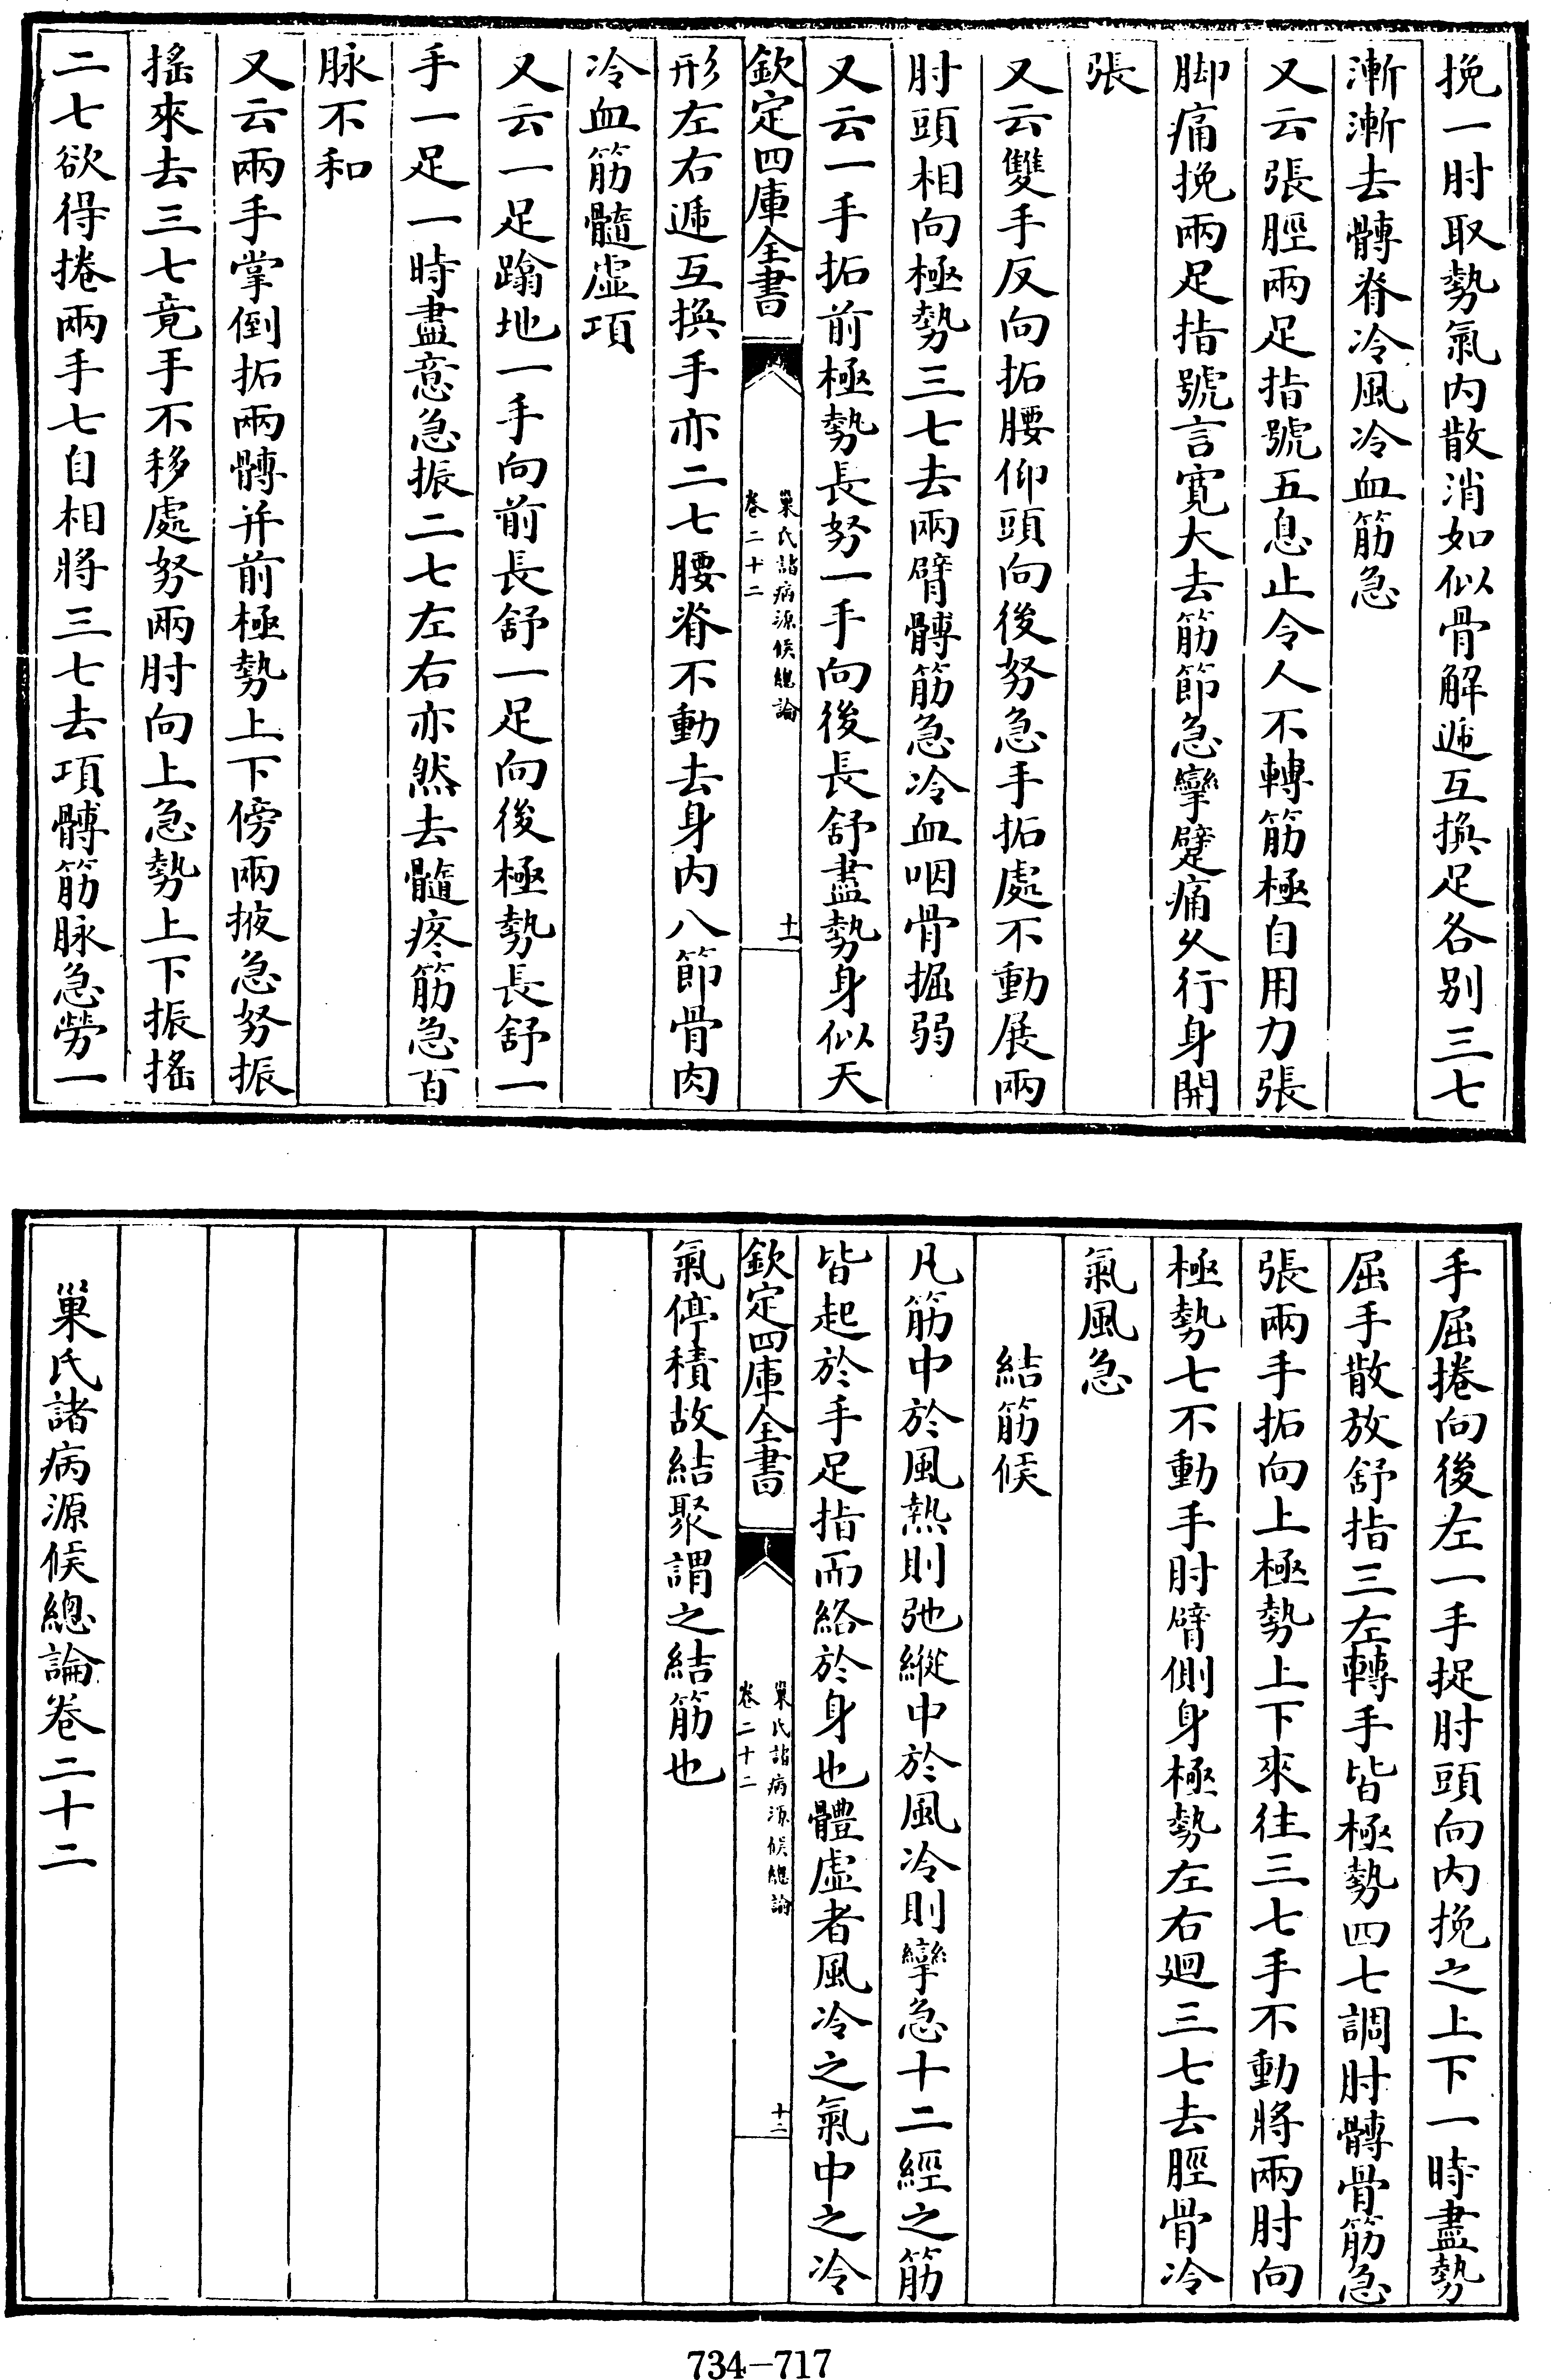 挽一肘取勢氣内散消如似骨解遞互換足各别三七
漸漸去髆脊冷風冷血筋急
又云張脛兩足指號五息止令人不轉筋極自用力張
脚痛挽兩足指號言寛大去筋節急攣躄痛久行身開
張
又云雙手反向拓腰仰頭向後努急手拓處不動展兩
肘頭相向極勢三七去兩臂髆筋急冷血咽骨掘弱
又云一手拓前極勢長努一手向後長舒盡勢身似天
欽定四庫全書
巢氏諸病源候總論
卷二十二
十一
形左右遞互換手亦二七腰脊不動去身内八節骨肉
冷血筋髓虚項
又云一足蹹地一手向前長舒一足向後極勢長舒一
手一足一時盡意急振二七左右亦然去髓疼筋急百
脉不和
又云兩手掌倒拓兩髆并前極勢上下傍兩掖急努振
摇來去三七竟手不移處努兩肘向上急勢上下振摇
二七欲得捲兩手七自相將三七去項髆筋脉急勞一
手屈捲向後左一手捉肘頭向内挽之上下一時盡勢
屈手散放舒指三左轉手皆極勢四七調肘髆骨筋急
張兩手拓向上極勢上下來往三七手不動將兩肘向
極勢七不動手肘臂側身極勢左右廻三七去脛骨冷
氣風急
結筋候
凡筋中於風熱則弛縱中於風冷則攣急十二經之筋
皆起於手足指而絡於身也體虚者風冷之氣中之冷
欽定四庫全書
巢氏諸病源候總論
卷二十二
十二
氣停積故結聚謂之結筋也
巢氏諸病源候總論卷二十二
734-717